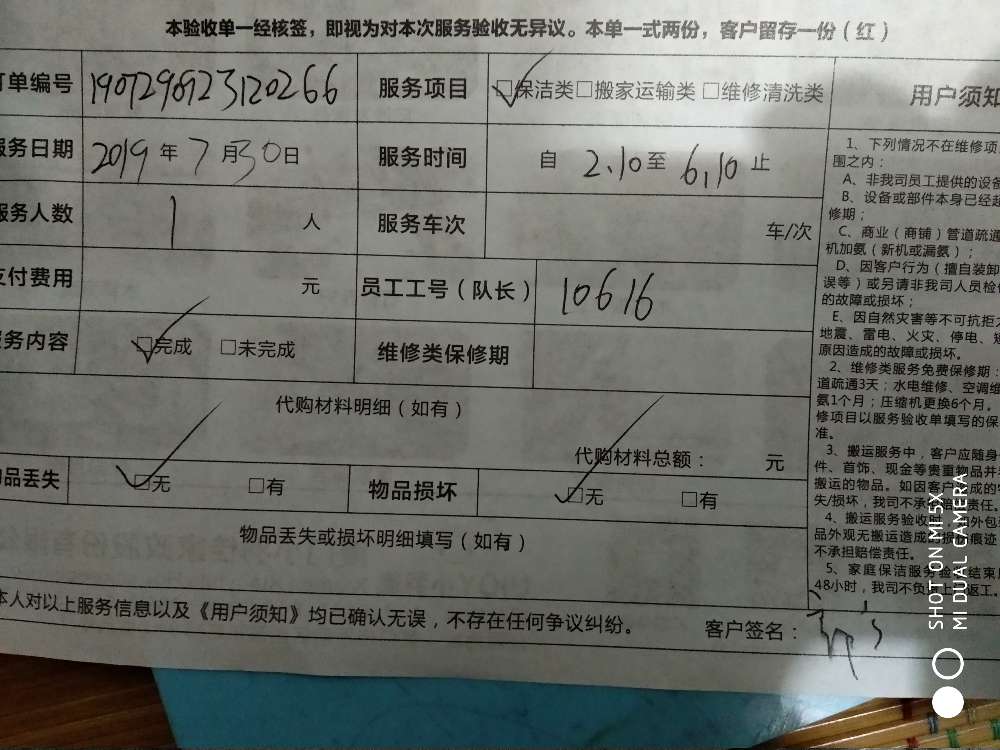 本验收单一经核签，即视为对本次服务验收无异议。本单一式两份，客户留存一份（红）
订单编号 服务项目 □保洁类□搬家运输类 □维修清洗类 用户须知
服务日期 2019年7月30日 服务时间 自 2.10至 6.10 止
服务人数 1 人 服务车次 车/次
支付费用 元 员工工号（队长） 10616
服务内容 □完成 □未完成 维修类保修期
代购材料明细（如有）
代购材料总额： 元
物品丢失 □无 □有 物品损坏 □无 □有
物品丢失或损坏明细填写（如有）
本人对以上服务信息以及《用户须知》均已确认无误，不存在任何争议纠纷。 客户签名：
1、下列情况不在维修项
围之内：
A、非我司员工提供的设备
B、设备或部件本身已经超
修期；
C、商业（商铺）管道疏通
机加氨（新机或漏氨）；
D、因客户行为（擅自装卸
误等）或另请非我司人员检修
的故障或损坏；
E、因自然灾害等不可抗拒
地震、雷电、火灾、停电、
原因造成的故障或损坏。
2、维修类服务免费保修期：
道疏通3天；水电维修、空调维
氨1个月；压缩机更换6个月。
修项目以服务验收单填写的保
准。
3、搬运服务中，客户应随身
件、首饰、现金等贵重物品并
搬运的物品。如因客户造成的
失/损坏，我司不承担赔偿责任。
4、搬运服务验收时，如外包
品外观无搬运造成的损伤痕迹
不承担赔偿责任。
5、家庭保洁服务验收结束
48小时，我司不负责上门返工。
SHOT ON MI 5X
MI DUAL CAMERA